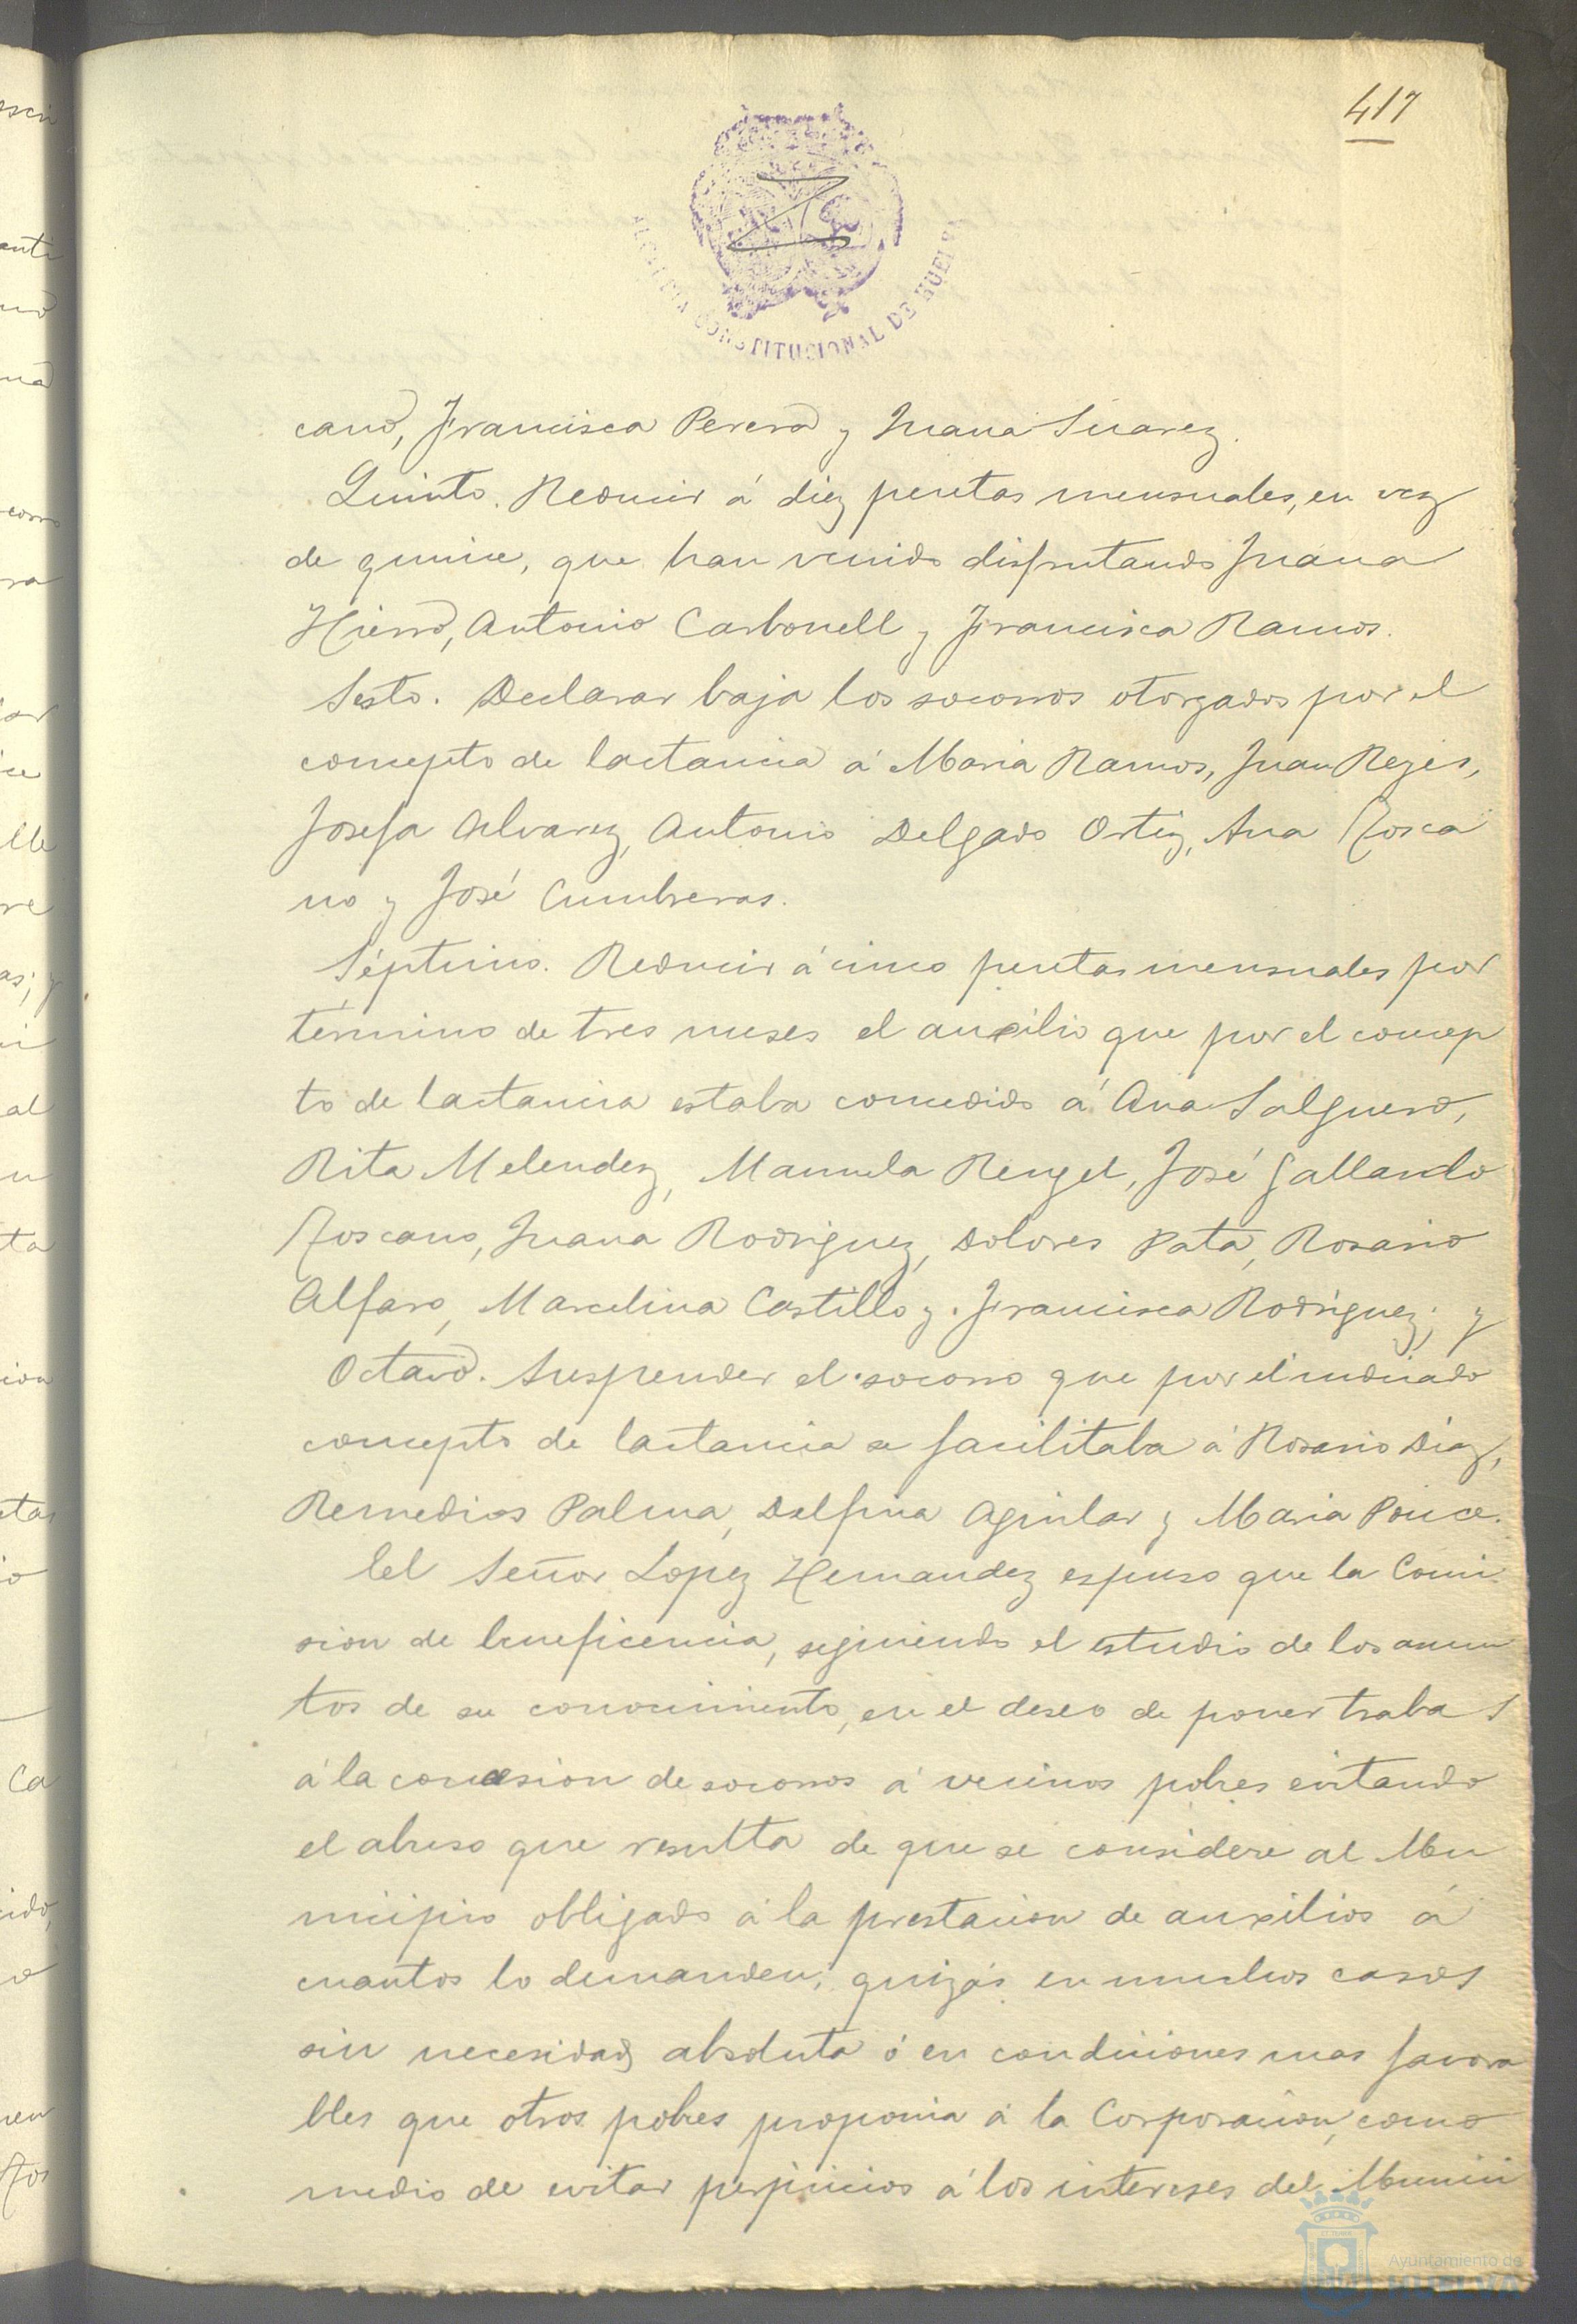 417
ALCALDIA CONSTITUCIONAL DE HUELVA
cano, Francisca Perera y Juana Suarez.
Quinto. Reducir á diez pesetas mensuales, en vez
de quince, que han venido disfrutando Juana
Hierro, Antonio Carbonell y Francisca Ramos.
Sesto. Declarar baja los socorros otorgados por el
concepto de lactancia á Maria Ramos, Juan Reyes,
Josefa Alvarez, Antonio Delgado Ortiz, Ana Rosca
no y José Cumbreras.
Séptimo. Reducir á cinco pesetas mensuales por
término de tres meses el auxilio que por el concep
to de lactancia estaba concedido á Ana Salguero,
Rita Melendez, Manuela Rengel, José Gallardo
Roscano, Juana Rodriguez, Dolores Pata, Rosario
Alfaro, Marcelina Castillo y Francisca Rodriguez; y
Octavo. Suspender el socorro que por el indicado
concepto de lactancia se facilitaba á Rosario Diaz,
Remedios Palma, Delfina Aguilar y Maria Ponce.
El Señor Lopez Hernandez espuso que la Comi
sion de beneficencia, siguiendo el estudio de los asun
tos de su conocimiento, en el deseo de poner trabas
á la concesion de socorros á vecinos pobres evitando
el abuso que resulta de que se considere al Mu
nicipio obligado á la prestacion de auxilios á
cuantos lo demanden, quizás en muchos casos
sin necesidad absoluta ó en condiciones mas favora
bles que otros pobres proponia á la Corporacion, como
medio de evitar perjuicios á los intereses del Munici
Ayuntamiento de
HUELVA